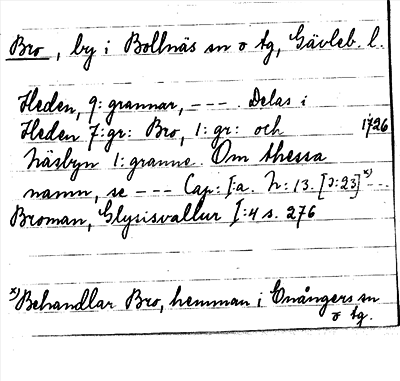 Bro, by i Bollnäs sn o tg, Gävleb. l.
Heden, 9: grannar, --- . Delas i
Heden 7: gr: Bro, 1: gr: och 1726
Näsbyn 1: granne. Om thessa
namn, se --- Cap: I: a. N: 13. [ɔ: 23] x) ---
Broman, Glysisvallur I: 4 s. 276
x) Behandlar Bro, hemman i Enångers sn
o tg.